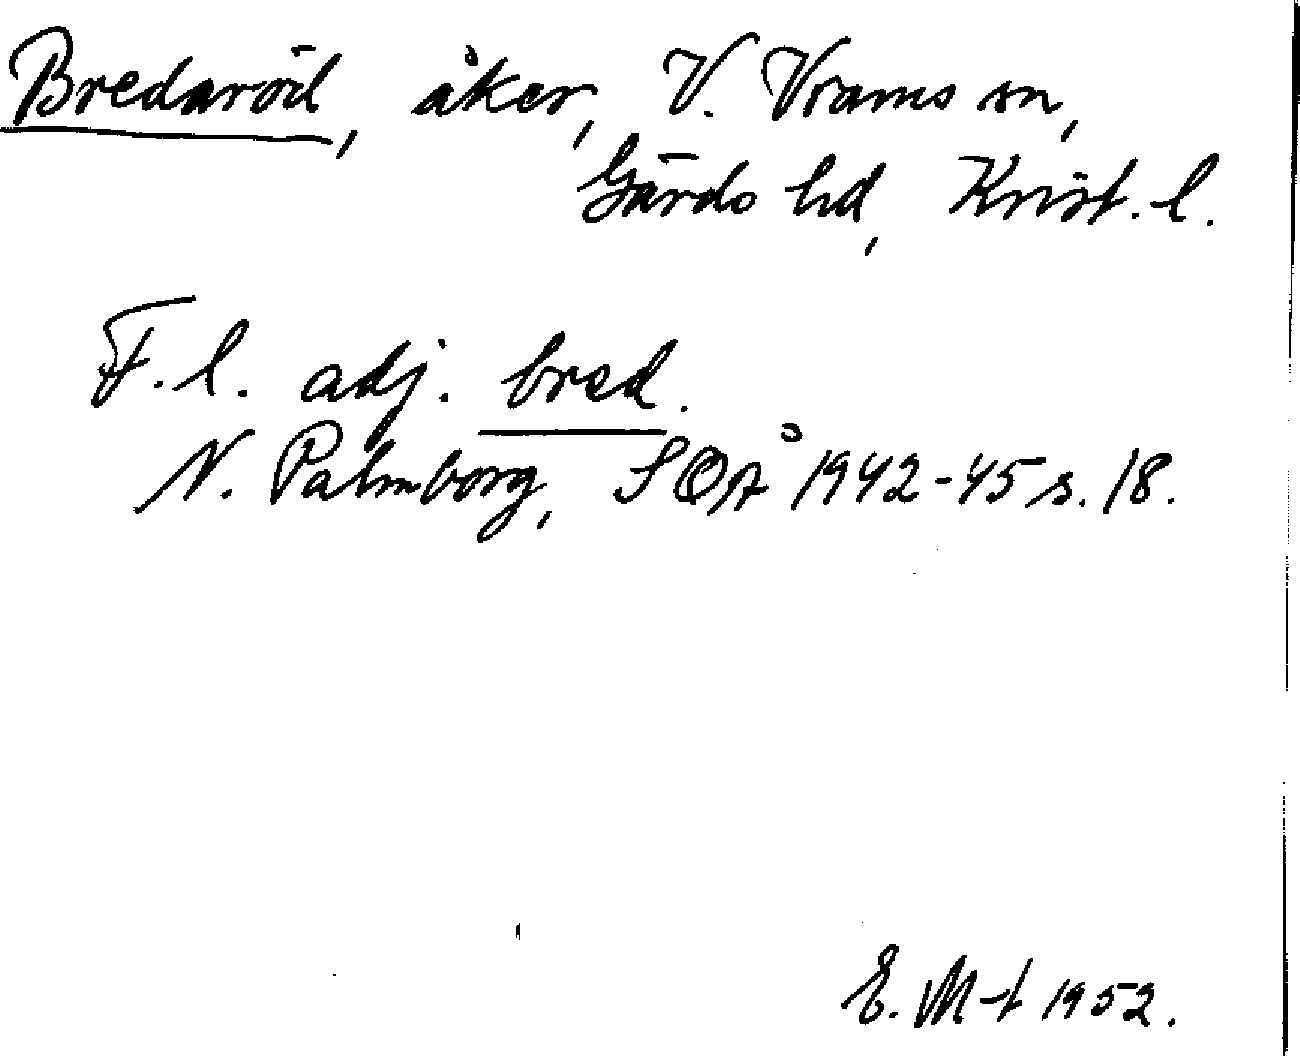 Bredaröd, åker, V. Vrams sn,
Gärds hd, Krist. l.
F.l. adj. bred.
N. Palmborg, SOÅ 1942-45 s. 18.
E. M-t 1952.